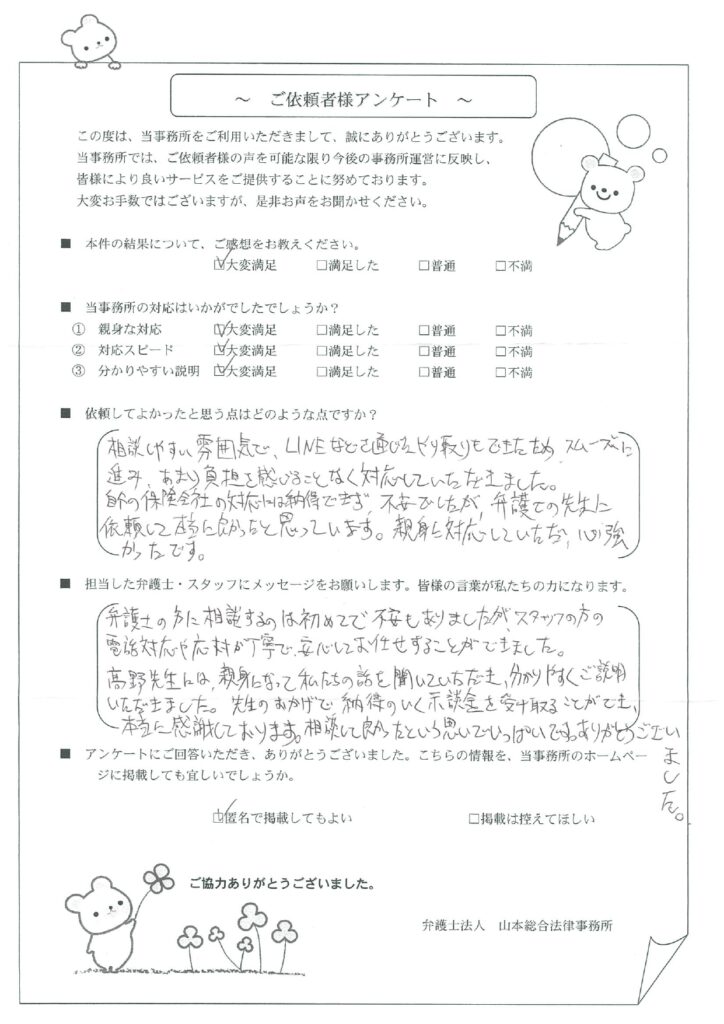 ～ ご依頼者様アンケート ～
この度は、当事務所をご利用いただきまして、誠にありがとうございます。
当事務所では、ご依頼者様の声を可能な限り今後の事務所運営に反映し、
皆様により良いサービスをご提供することに努めております。
大変お手数ではございますが、是非お声をお聞かせください。
■ 本件の結果について、ご感想をお教えください。
☑大変満足 □満足した □普通 □不満
■ 当事務所の対応はいかがでしたでしょうか？
① 親身な対応 ☑大変満足 □満足した □普通 □不満
② 対応スピード ☑大変満足 □満足した □普通 □不満
③ 分かりやすい説明 ☑大変満足 □満足した □普通 □不満
■ 依頼してよかったと思う点はどのような点ですか？
相談しやすい雰囲気で、LINEなどを通じたやり取りもできたため、スムーズに
進み、あまり負担を感じることなく対応していただきました。
自分の保険会社の対応には納得できず、不安でしたが、弁護士の先生に
依頼して本当に良かったと思っています。親身に対応していただき、心強
かったです。
■ 担当した弁護士・スタッフにメッセージをお願いします。皆様の言葉が私たちの力になります。
弁護士の方に相談するのは初めてで不安もありましたが、スタッフの方の
電話対応や応対が丁寧で、安心してお任せすることができました。
高野先生には、親身になって私たちの話を聞いていただき、分かりやすくご説明
いただきました。先生のおかげで、納得のいく示談金を受け取ることができ、
本当に感謝しております。相談して良かったという思いでいっぱいです。ありがとうござい
ました。
■ アンケートにご回答いただき、ありがとうございました。こちらの情報を、当事務所のホームペー
ジに掲載しても宜しいでしょうか。
☑匿名で掲載してもよい □掲載は控えてほしい
ご協力ありがとうございました。
弁護士法人 山本総合法律事務所